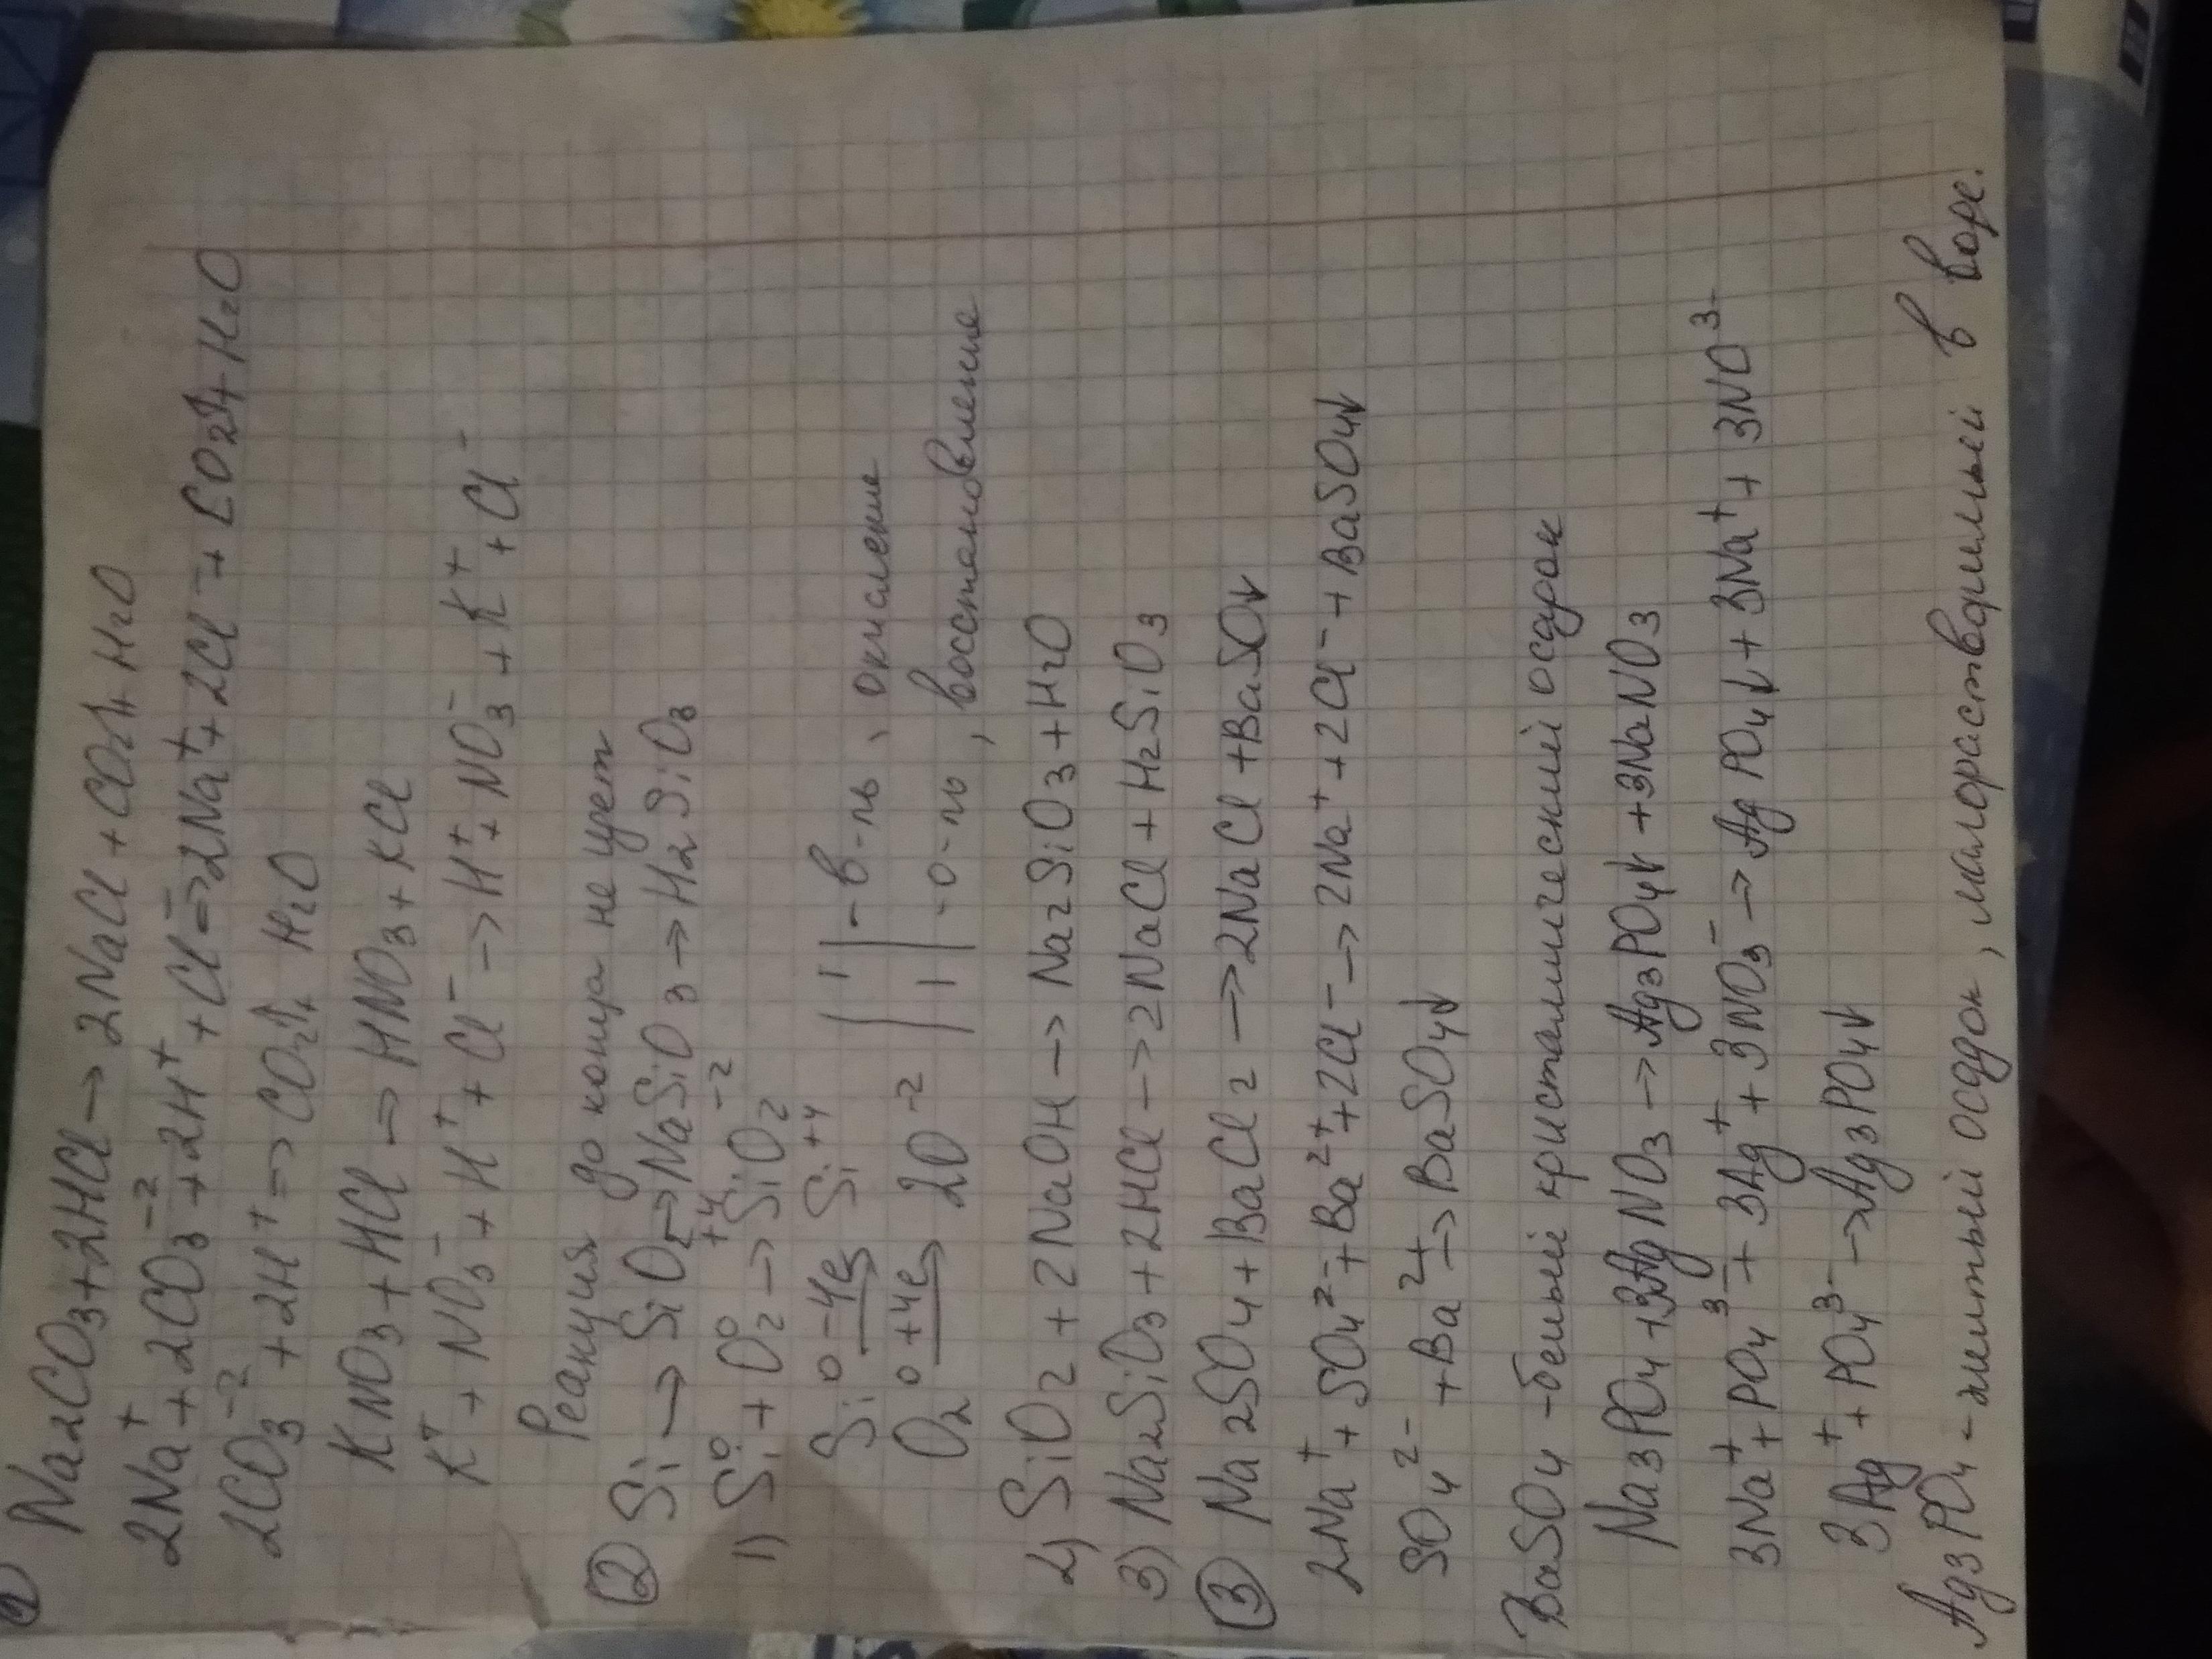 1 Na2CO3+2HCl→2NaCl+CO2↑+H2O
2Na⁺+2CO3⁻²+2H⁺+Cl⁻⇒2Na⁺+2Cl⁻+CO2↑+H2O
2CO3⁻²+2H⁺⇒CO2↑+H2O
KNO3+HCl⇒HNO3+KCl
K⁺+NO3⁻+H⁺+Cl⁻→H⁺+NO3⁻+K⁺+Cl⁻
Реакция до конца не идет
② Si→SiO2→NaSiO3→H2SiO3
1) Si⁰+O2⁰→Si⁺⁴O2⁻²
Si⁰ -4e Si⁺⁴ | 1 | -в-ль, окисление
O2⁰ +4e 2O⁻² | 1 | -о-ль, восстановление
2) SiO2+2NaOH→Na2SiO3+H2O
3) Na2SiO3+2HCl→2NaCl+H2SiO3
③ Na2SO4+BaCl2→2NaCl+BaSO↓
2Na⁺+SO4²⁻+Ba²⁺+2Cl⁻→2Na⁺+2Cl⁻+BaSO4↓
SO4²⁻+Ba²⁺→BaSO4↓
BaSO4-белый кристаллический осадок
Na3PO4+3AgNO3→Ag3PO4↓+3NaNO3
3Na⁺+PO4³⁻+3Ag⁺+3NO3⁻→AgPO4↓+3Na⁺+3NO³⁻
3Ag⁺+PO4³⁻→Ag3PO4↓
Ag3PO4-желтый осадок, малорастворимый в воде.